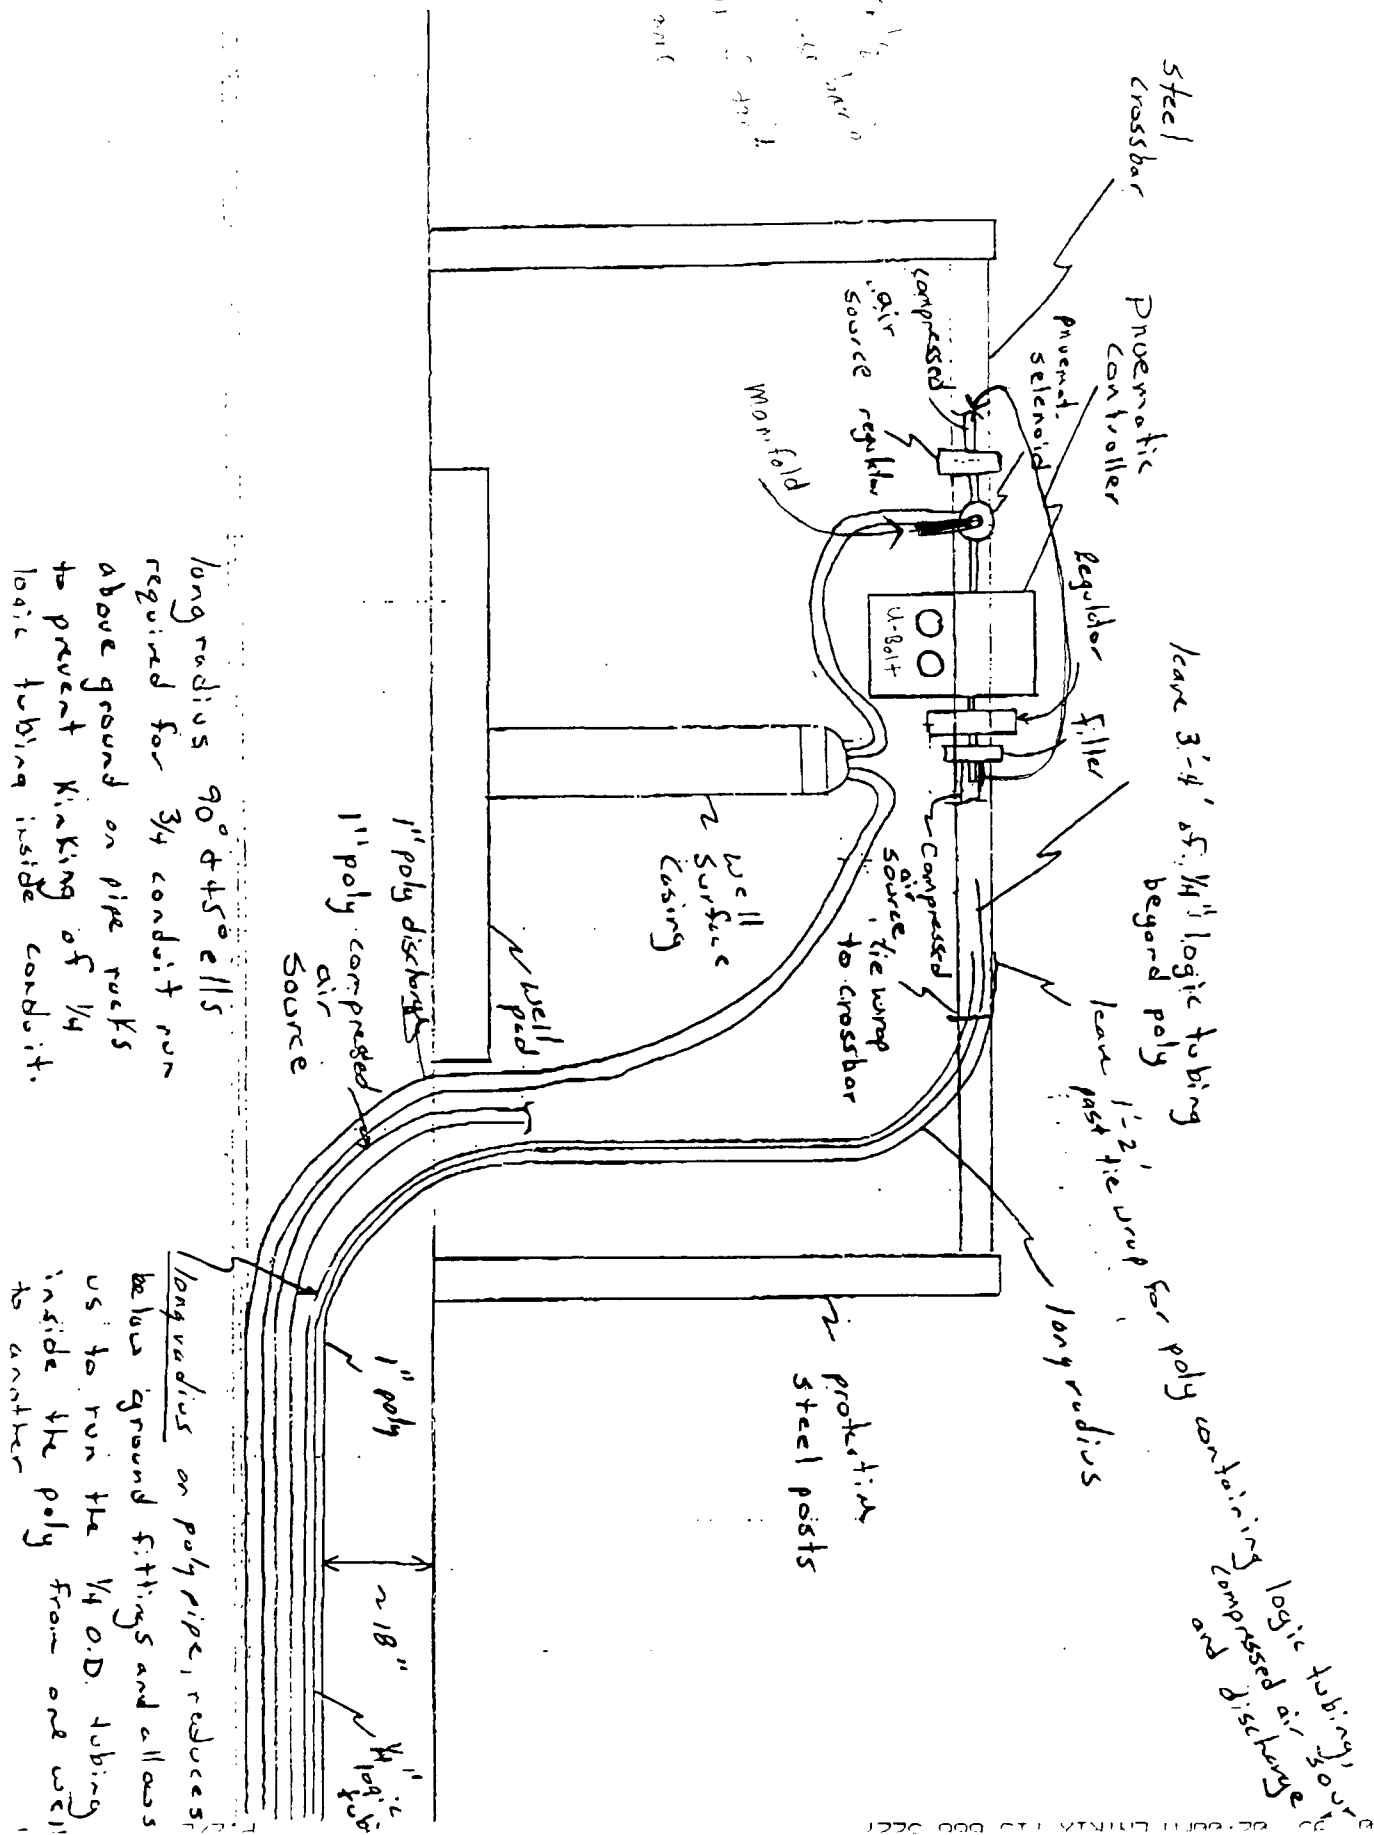 steel
crossbar
Pnuematic
controller
pnuemat.
selenoid
compressed
air
source
regulator
manifold
U-Bolt
Regulator
filler
leave 3'-4' of 1/4" logic tubing
beyond poly
leave 1'-2' for poly containing logic tubing,
past tie wrap
compressed air
and discharge
compressed
air
source
tie wrap
to crossbar
long radius
well
surface
casing
well
pad
protective
steel posts
1" poly discharge
1" poly compressed
air
source
1" poly
~18"
1/4"
logic
long radius 90° + 45° ells
required for 3/4 conduit run
above ground on pipe racks
to prevent kinking of 1/4
logic tubing inside conduit.
long radius on poly pipe, reduces
below ground fittings and allows
us to run the 1/4 O.D. tubing
inside the poly from one well
to another